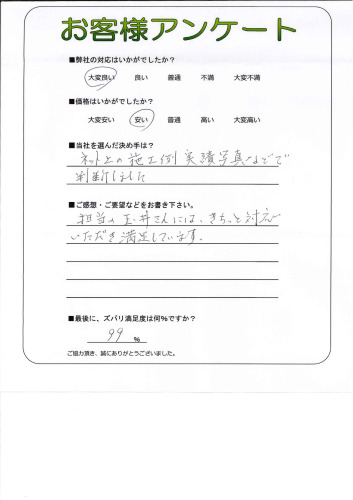 お客様アンケート
■弊社の対応はいかがでしたか？
大変良い 良い 普通 不満 大変不満
■価格はいかがでしたか？
大変安い 安い 普通 高い 大変高い
■当社を選んだ決め手は？
ネット上の施工例 実績写真などで
判断しました
■ご感想・ご要望などをお書き下さい。
担当の玉井さんには、きちっと対応
いただき満足しています。
■最後に、ズバリ満足度は何％ですか？
99 ％
ご協力頂き、誠にありがとうございました。